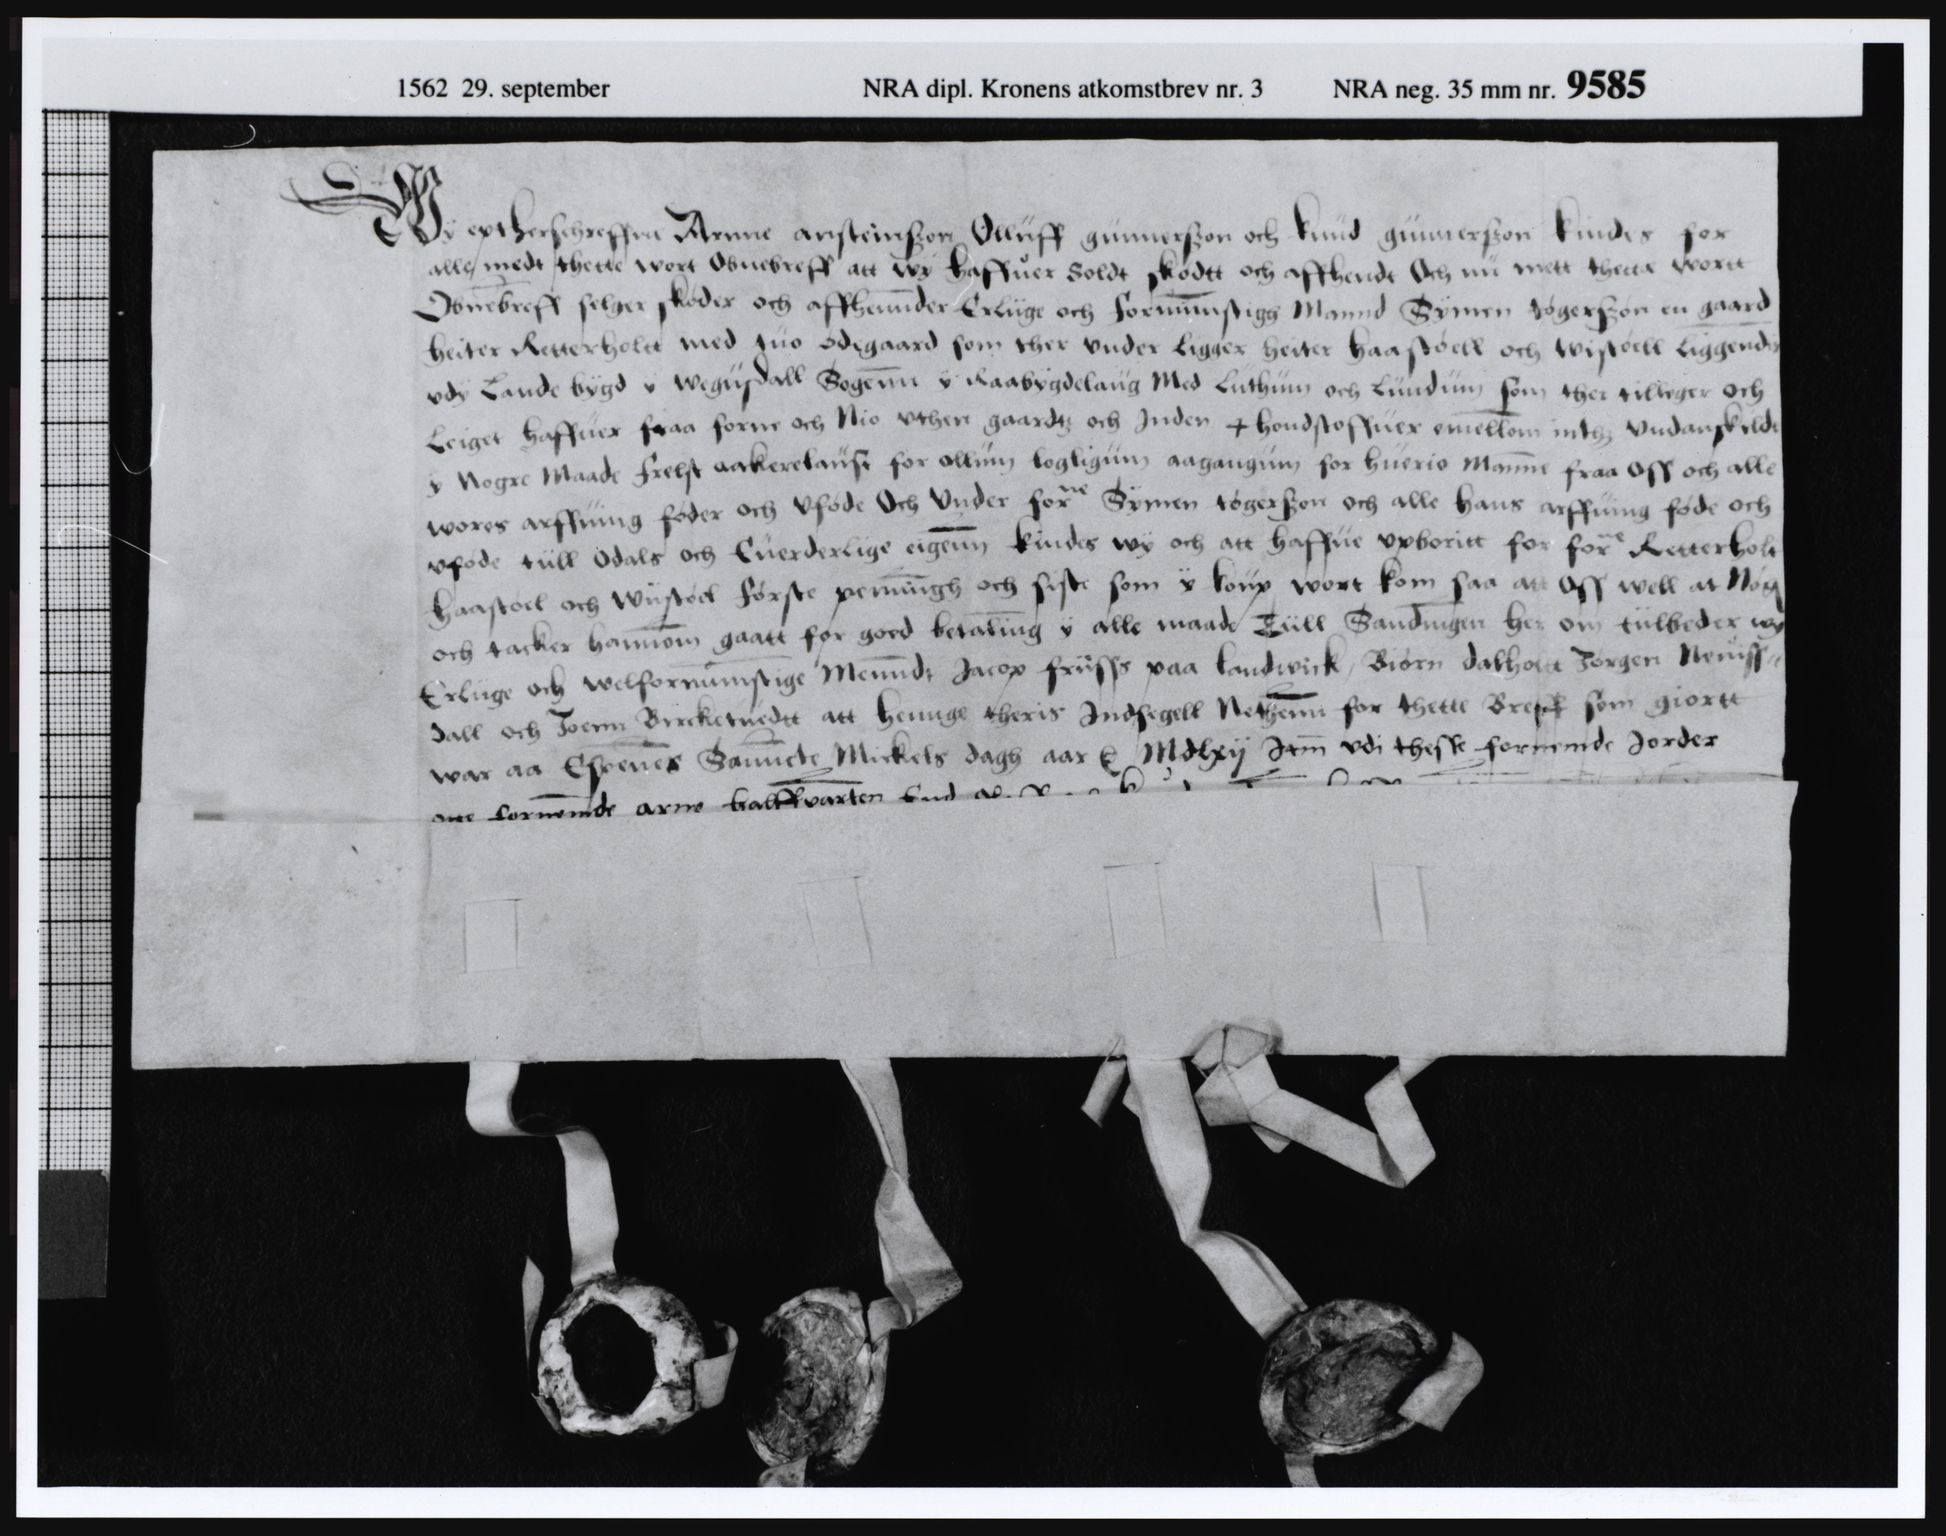 1562 29. september NRA dipl. Kronens atkomstbrev nr. 3 NRA neg. 35 mm nr. 9585
Wy eptherschreffne Arnne ansteinszon Olluff gunnerszon och knud gunnerszon kindes for
alle medt thette wort Obnebreff att wy haffuer Soldt skødtt och affhendt Och nu mett thette wortt
Obnebreff selger skøder och affhennder Erlige och fornumstigg Mannd Symen tøgerszon en gaard
heiter Retterholtt med tuo ødegaard som ther vnder Ligger heiter haastöell och wistöell Liggendis
vdy Lande bygd y wegusdall Sogenn y Raabygdelaug Med Luthum och Lundum som ther tilliger och
Leiget haffuer fraa forne och Nio vthen gaardtz och Inden + hondstoffuer emellom inthz Vndanskilde
y Nogre Maade Frelst aakereløust for ollum logligum aagangum for huerio Manne fraa Oss och alle
wores arffuing føder och Vføde Och Vnder forne Symen tøgerszon och alle hans arffuing føde och
vføde tüll Odals och Euerderlige eigenn kindes wy och att haffue vpboritt for forne Retterholt
haastöel och wiistöel Første penningh och siste som y køup wort kom saa att Oss well at Nøg
och tacker hannom gaatt for goed betaling y alle maade Tüll Sandingen her om tülbeder wy
Erlige och welfornumstige Menndt Jacop frusss paa landwick, Biørn dalholtt Jørgen
dall och Joenn Bircketuedtt att henge theris Indsegell Nethenn for thette Breff som giortt
war aa Sanncte Mickels dagh aar Mdlxij Jtm vdi thesse fornemde Jorder
fornemde arne halffparten